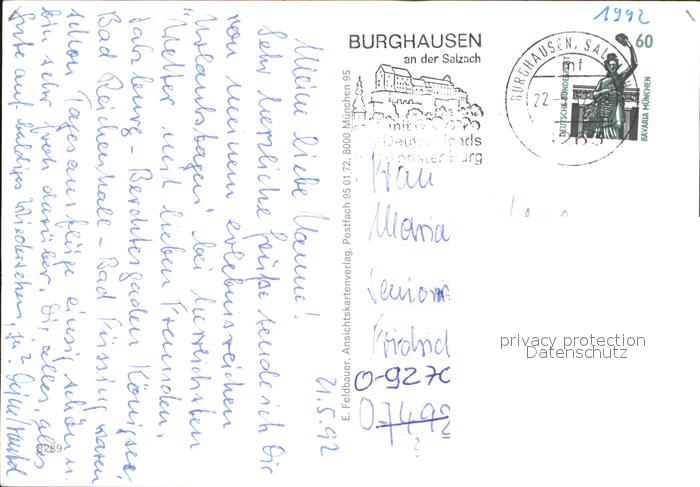 1992
BURGHAUSEN
an der Salzach
BURGHAUSEN, SALZ
mf
22
60
DEUTSCHE BUNDESPOST
BAVARIA MÜNCHEN
Deutschlands
Burg
Meine liebe Hanne!
21.5.92
Sehr herzliche Grüße sende ich Dir
von meinem erlebnisreichen
Urlaubstagen bei herrlichsten
Wetter mit lieben Freunden.
Salzburg - Berchtesgaden Königsee,
Bad Reichenhall - Bad Füssing waren
schon Tagesausflüge einzig schön u.
bin sehr froh darüber. Dir alles, alles
Gute auf baldiges Wiedersehen,
E. Feldbauer, Ansichtskartenverlag, Postfach 95 01 72, 8000 München 95
Frau
Maria
Senior
Friedrich
O-9270
07492
?
privacy protection
Datenschutz